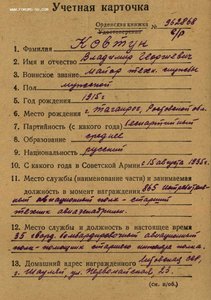 Учетная карточка
Орденская книжка № 962868
Удостоверение б/р
1. Фамилия Ковтун
2. Имя и отчество Владимир Георгиевич
3. Воинское звание майор техн. службы
4. Пол мужской
5. Год рождения 1915 г.
6. Место рождения г. Таганрог, Ростовской обл.
7. Партийность (с какого года) беспартийный
8. Образование среднее
9. Национальность русский
10. С какого года в Советской Армии с 15 августа 1935 г.
11. Место службы (наименование части) и занимаемая
должность в момент награждения 865 Истребитель-
ный авиационный полк - старший
техник авиаэскадрильи.
12. Место службы и должность в настоящее время
35 бомбардировочный авиационный
полк - помощник старшего инженера полка.
13. Домашний адрес награжденного Литовская ССР,
г. Шауляй, ул. Первомайская 23.
(см. н/об.)